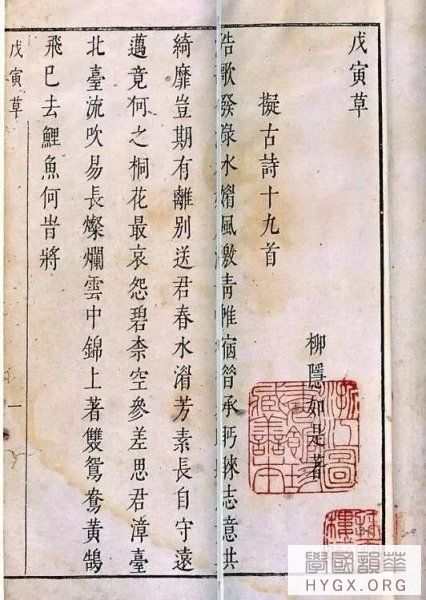 戊寅草
擬古詩十九首
柳隱如是著
浩歌發淥水熠風激靑帷宿昔承眄睞志意共
綺靡豈期有離別送君春水湄芳素長自守遠
邁竟何之桐花最哀怨碧柰空參差思君漳臺
北臺流吹易長燦爛雲中錦上著雙鴛鴦黃鵠
飛巳去鯉魚何旹將
戊寅草
一
華韻國學
HYGX.ORG